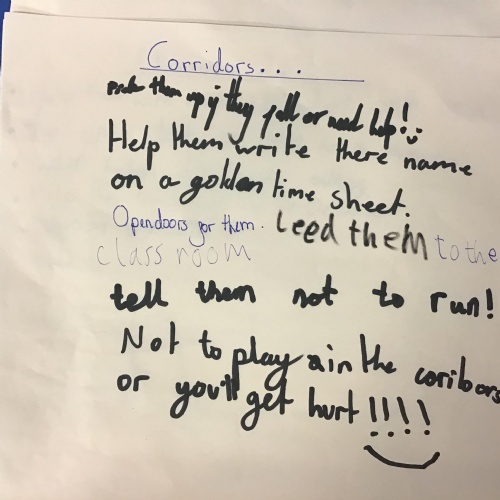 Corridors...
them up if they fall or need help!
Help them write there name
on a golden time sheet.
Opendoors for them. Leed them to the
class room
tell them not to run!
Not to play in the coribors
or you'll get hurt !!!!